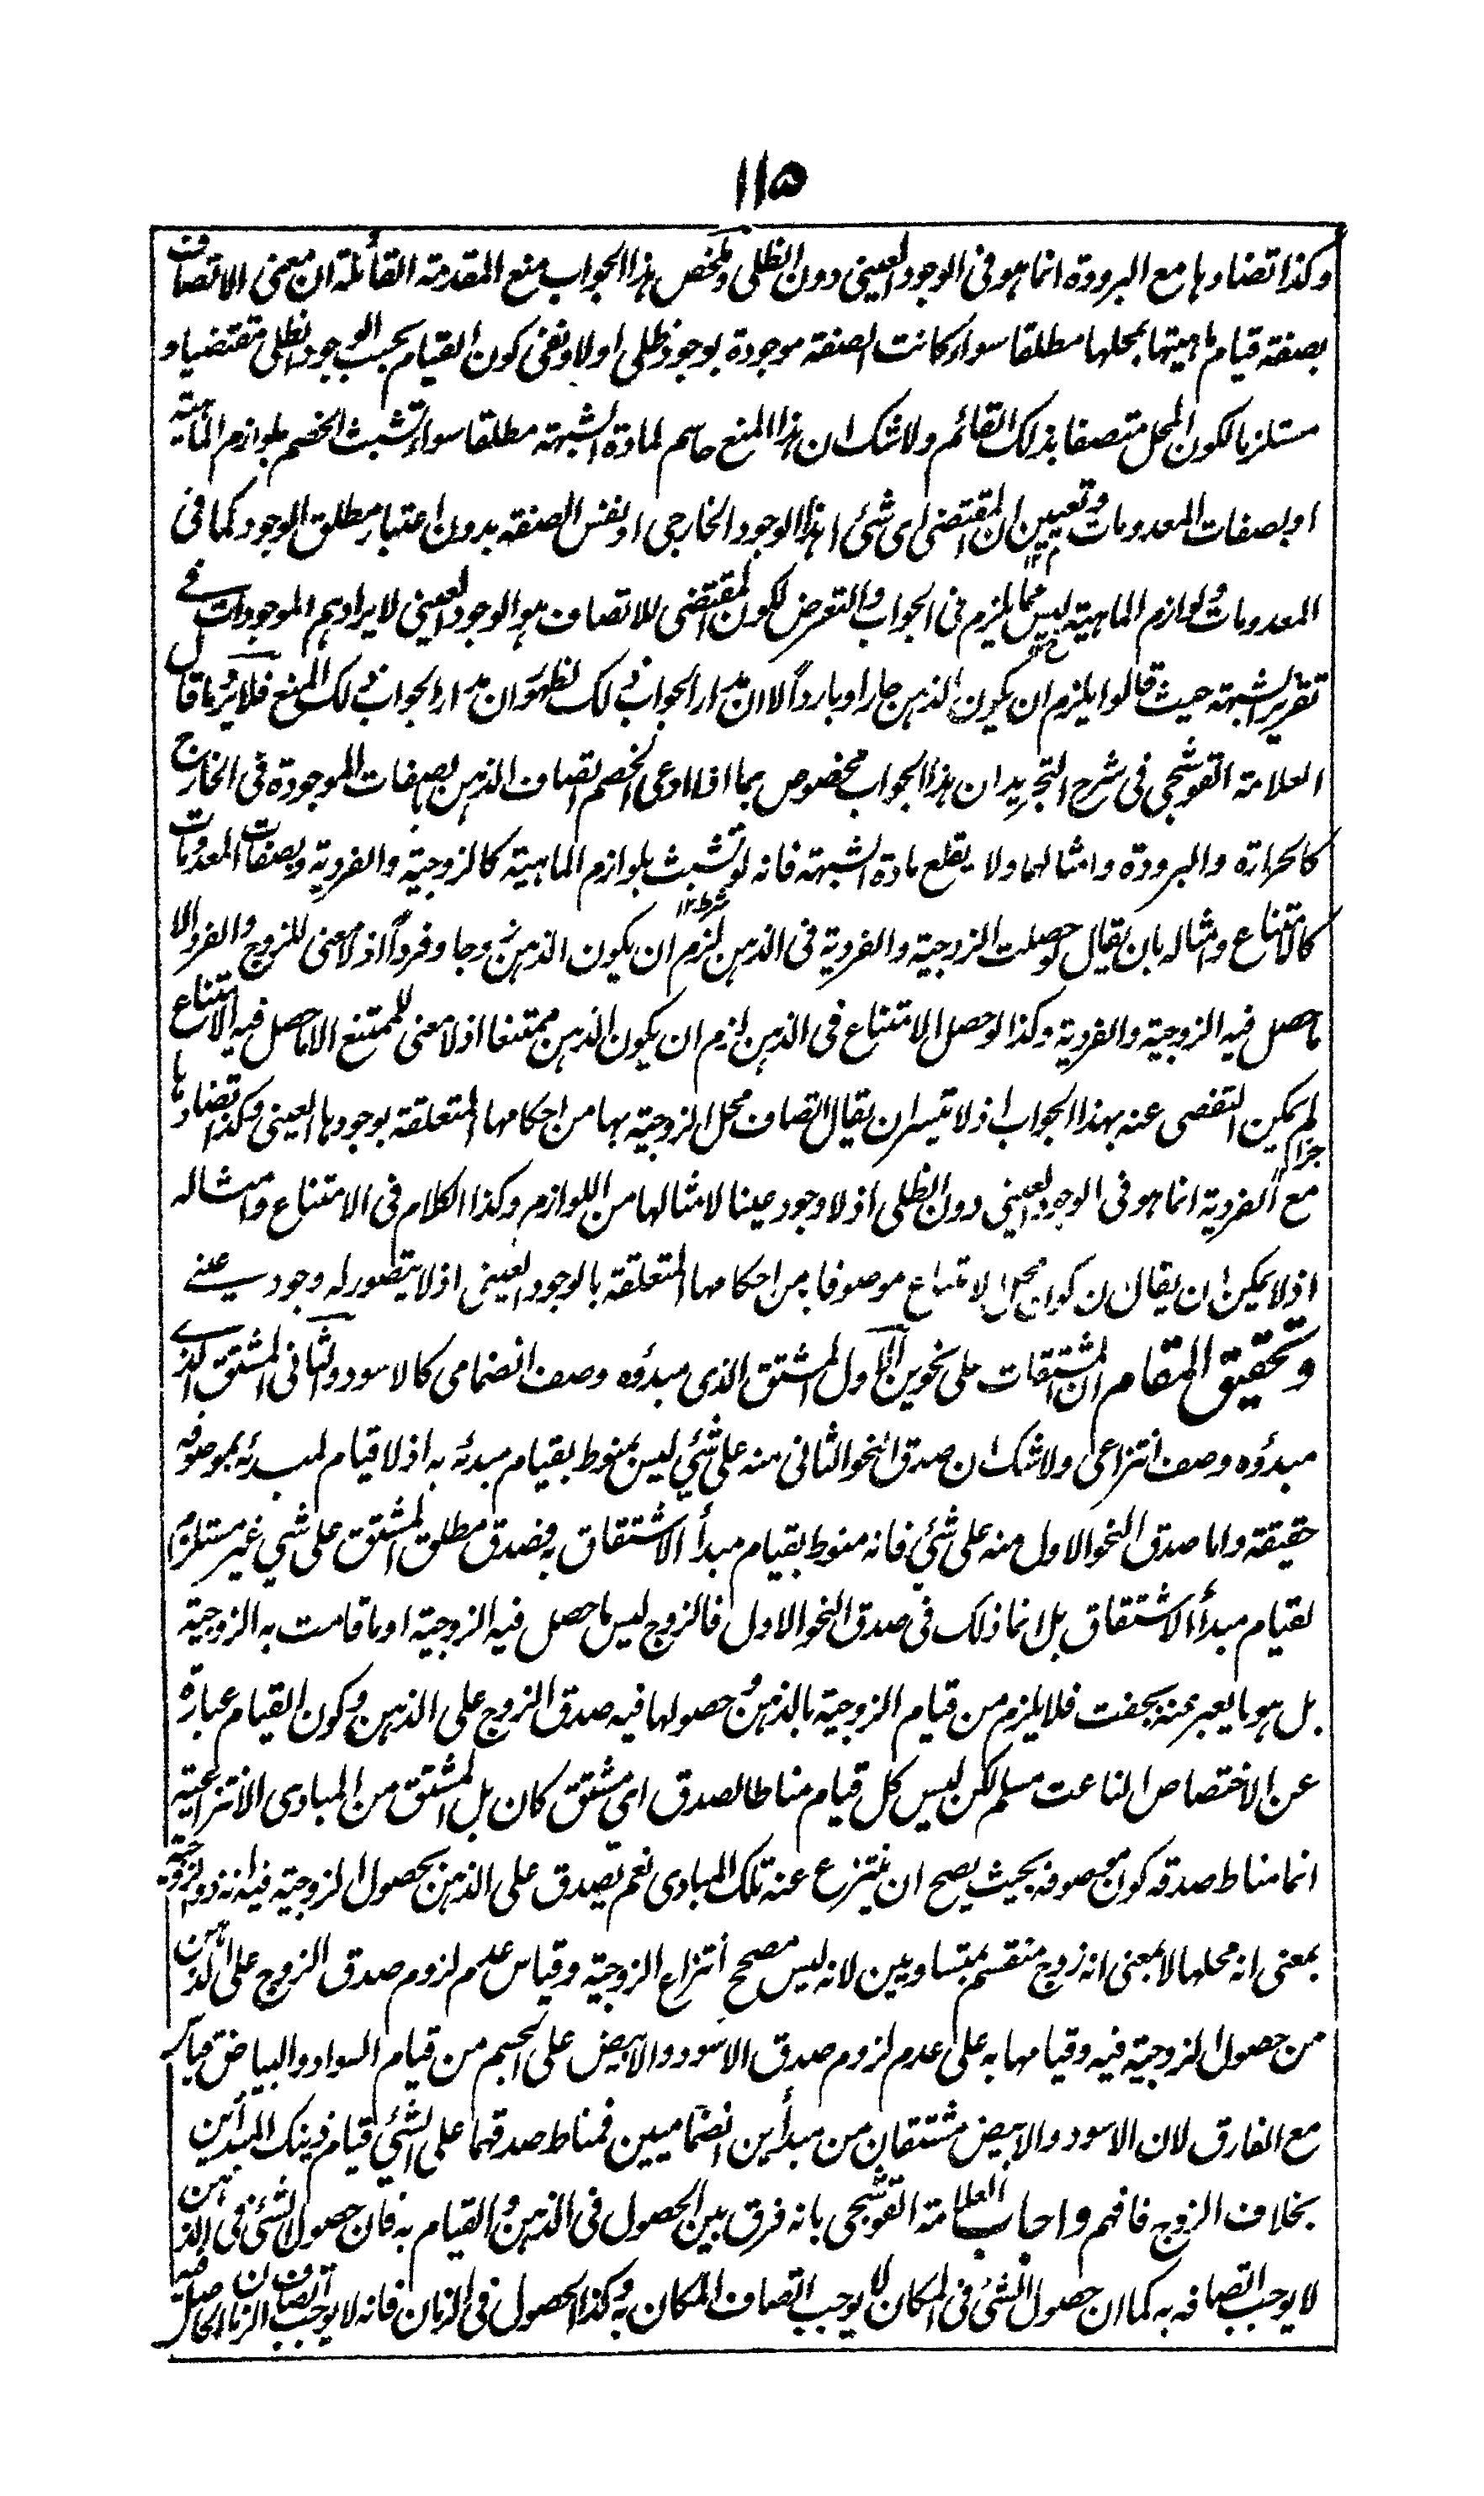 ١١٥
وكذا تضادها مع البرودة انما هو فى الوجود العينى دون الظلى وملخص هذا الجواب منع المقدمة القائلة ان معنى الاتصاف
بصفة قيام ماهيتها بمحلها مطلقا سواء كانت الصفة موجودة بوجود ظلى او لا ونفى كون القيام بحسب الوجود الظلى مقتضيا و
مستلزما لكون المحل متصفا بذلك القائم ولا شك ان هذا المنع حاسم لمادة الشبهة مطلقا سواء تشبث الخصم بلوازم الماهية
او بصفات المعدومات وتعيين ان المقتضى اى شئ اهذا الوجود الخارجى او نفس الصفة بدون اعتبار مطلق الوجود كما فى
المعدومات ولوازم الماهية ليس مما يلزم فى الجواب والتعرض لكون المقتضى للاتصاف هو الوجود العينى لايرادهم الموجودات فى
تقرير الشبهة حيث قالوا يلزم ان يكون الذهن حارا وباردا لا لان مدار الجواب ذلك لظهور ان مدار الجواب ذلك المنع فلا يرد ما قال
العلامة القوشجى فى شرح التجريد ان هذا الجواب مخصوص بما اذا ادعى الخصم اتصاف الذهن بصفات الموجودة فى الخارج
كالحرارة والبرودة وامثالهما ولا يقلع مادة الشبهة فانه لو تشبث بلوازم الماهية كالزوجية والفردية وبصفات المعدومات
كالامتناع وامثاله بان يقال لو حصلت الزوجية والفردية فى الذهن لزم ان يكون الذهن زوجا وفردا اذ لا معنى للزوج والفرد الا
ما حصل فيه الزوجية والفردية وكذا لو حصل الامتناع فى الذهن لزم ان يكون الذهن ممتنعا اذ لا معنى للممتنع الا ما حصل فيه الامتناع
لم يمكن التفصى عنه بهذا الجواب اذ لا تيسر ان يقال اتصاف محل الزوجية بها من احكامها المتعلقة بوجودها العينى وكذا تضادها
مع الفردية انما هو فى الوجود العينى دون الظلى اذ لا وجود عينا لامثالها من اللوازم وكذا الكلام فى الامتناع وامثاله
اذ لا يمكن ان يقال ان كون محل الامتناع موصوفا به من احكامها المتعلقة بالوجود العينى اذ لا يتصور له وجود عينى
وتحقيق المقام ان المشتقات على نحوين الاول المشتق الذى مبدؤه وصف انضمامى كالاسود والثانى المشتق الذى
مبدؤه وصف انتزاعى ولا شك ان صدق النحو الثانى منه على شئ ليس بمنوط بقيام مبدئه به اذ لا قيام لمبدئه بموصوفه
حقيقة واما صدق النحو الاول منه على شئ فانه منوط بقيام مبدأ الاشتقاق به فصدق مطلق المشتق على شئ غير مستلزم
لقيام مبدأ الاشتقاق بل انما ذلك فى صدق النحو الاول فالزوج ليس ما حصل فيه الزوجية او ما قامت به الزوجية
بل هو ما يعبر عنه بجفت فلا يلزم من قيام الزوجية بالذهن وحصولها فيه صدق الزوج على الذهن وكون القيام عبارة
عن الاختصاص الناعت مسلم لكن ليس كل قيام مناطا لصدق اى مشتق كان بل المشتق من المبادى الانتزاعية
انما مناط صدقه كون موصوفه بحيث يصح ان ينتزع عنه تلك المبادى نعم يصدق على الذهن بحصول الزوجية فيه انه ذو زوجية
بمعنى انه محلها لا بمعنى انه زوج منقسم بمتساويين لانه ليس مصحح انتزاع الزوجية وقياس عدم لزوم صدق الزوج على الذهن
من حصول الزوجية فيه وقيامها به على عدم لزوم صدق الاسود والابيض على الجسم من قيام السواد والبياض قياس
مع الفارق لان الاسود والابيض مشتقان من مبدأين انضماميين فمناط صدقهما على الشئ قيام ذينك المبدأين
بخلاف الزوج فافهم واجاب العلامة القوشجى بانه فرق بين الحصول فى الذهن والقيام به فان حصول الشئ فى الذهن
لا يوجب اتصافه به كما ان حصول الشئ فى المكان لا يوجب اتصاف المكان به وكذا الحصول فى الزمان فانه لا يوجب اتصاف الزمان بالحاصل فيه